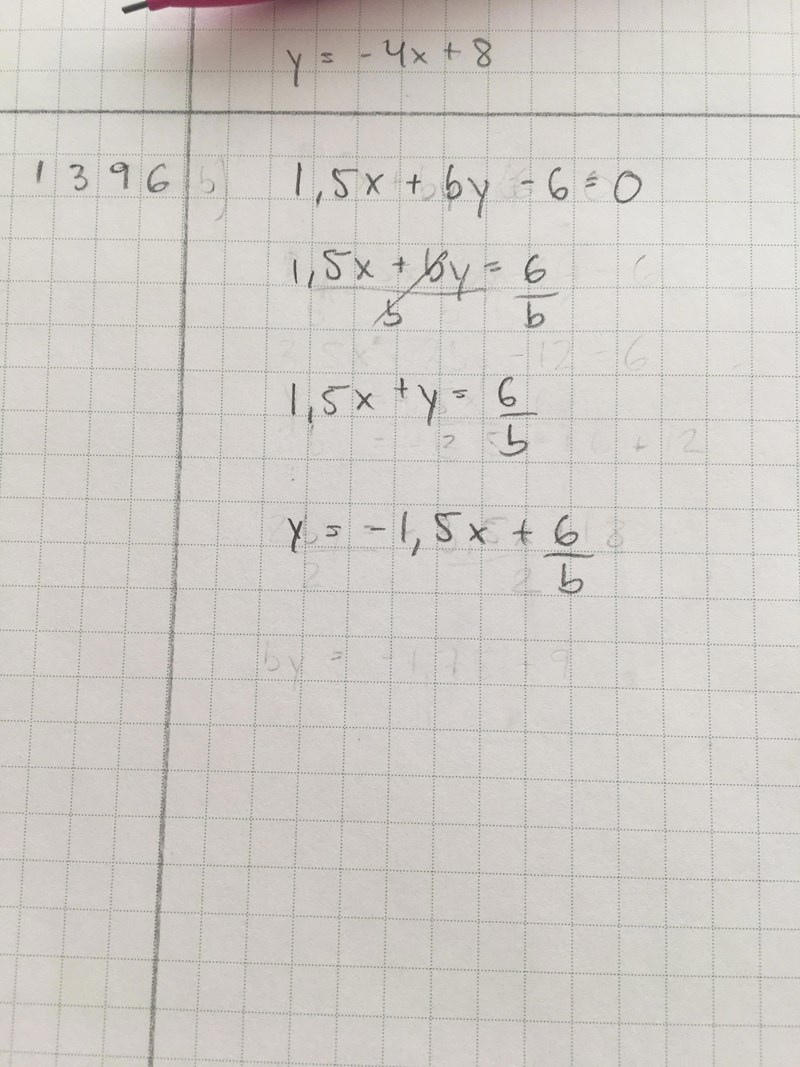 y = -4x + 8
1396 b) 1,5x + by - 6 = 0
1,5x + by = 6
b b
1,5x + y = 6
b
y = -1,5x + 6
b